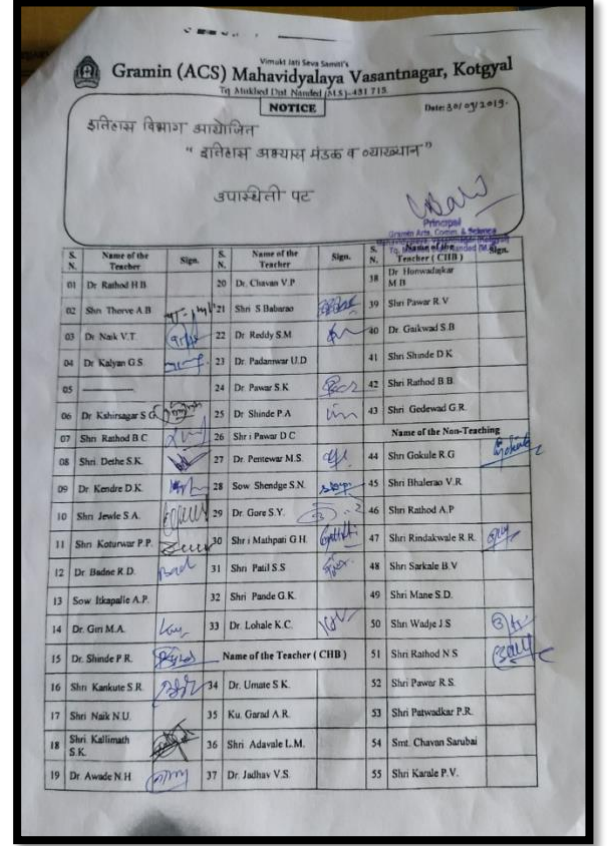 Vimukt Jati Seva Samiti's
Gramin (ACS) Mahavidyalaya Vasantnagar, Kotgyal
Tq. Mukhed Dist. Nanded (M.S)-431 715
NOTICE
Date: 30/09/2019.
इतिहास विभाग आयोजित
" इतिहास अभ्यास मंडळ व व्याख्यान "
उपास्थिती पट
Principal
Gramin Arts, Comm. & Science
S. N. Name of the Teacher Sign. S. N. Name of the Teacher Sign. S. N. Name of the Teacher ( CHB ) Sign.
01 Dr Rathod H.B. 20 Dr. Chavan V.P 38 Dr Hunwadajkar M.B
02 Shri Thorve A.B 21 Shri S Babarao 39 Shri Pawar R.V
03 Dr Naik V.T. 22 Dr. Reddy S.M 40 Dr. Gaikwad S.B
04 Dr Kalyan G.S. 23 Dr. Padamwar U.D 41 Shri Shinde D.K
05 ———— 24 Dr. Pawar S.K 42 Shri Rathod B.B.
06 Dr Kshirsagar S G. 25 Dr Shinde P.A 43 Shri Gedewad G.R.
07 Shri Rathod B C 26 Shr i Pawar D C Name of the Non-Teaching
08 Shri. Dethe S.K. 27 Dr. Pentewar M.S. 44 Shri Gokule R.G
09 Dr. Kendre D.K. 28 Sow Shendge S.N. 45 Shri Bhalerao V.R.
10 Shri Jewle S A. 29 Dr. Gore S.Y. 46 Shri Rathod A.P
11 Shri Koturwar P P. 30 Shr i Mathpati G H. 47 Shri Rindakwale R. R.
12 Dr Badne R.D. 31 Shri Patil S S 48 Shri Sarkale B.V
13 Sow Itkapalle A.P. 32 Shri Pande G.K. 49 Shri Mane S.D.
14 Dr. Giri M.A. 33 Dr. Lohale K.C. 50 Shri Wadje J.S
15 Dr. Shinde P R. Name of the Teacher ( CHB ) 51 Shri Rathod N S
16 Shri Kankute S.R. 34 Dr. Umate S K. 52 Shri Pawar R.S.
17 Shri Naik N.U. 35 Ku. Garad A.R. 53 Shri Patwadkar P.R.
18 Shri Kallimath S.K. 36 Shri Adavale L.M. 54 Smt. Chavan Sarubai
19 Dr. Awade N.H 37 Dr. Jadhav V.S. 55 Shri Karale P.V.